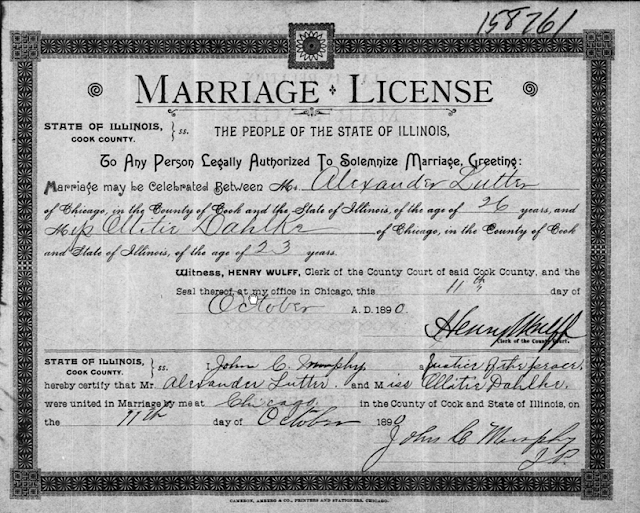 158761
MARRIAGE LICENSE
STATE OF ILLINOIS, COOK COUNTY. } ss. THE PEOPLE OF THE STATE OF ILLINOIS,
To Any Person Legally Authorized To Solemnize Marriage, Greeting:
Marriage may be Celebrated Between Mr. Alexander Lutter
of Chicago, in the County of Cook and the State of Illinois, of the age of 26 years, and
Miss Dahlke of Chicago, in the County of Cook
and State of Illinois, of the age of 23 years.
Witness, HENRY WULFF, Clerk of the County Court of said Cook County, and the
Seal thereof, at my office in Chicago, this 11th day of
October A. D. 1890.
Henry Wulff
Clerk of the County Court.
STATE OF ILLINOIS, COOK COUNTY. } ss. I John C. Murphy a Justice of the peace
hereby certify that Mr. Alexander Lutter and Miss Dahlke
were united in Marriage by me at Chicago in the County of Cook and State of Illinois, on
the 11th day of October 1890
John C Murphy
J.P.
CAMERON, AMBERG & CO., PRINTERS AND STATIONERS, CHICAGO.